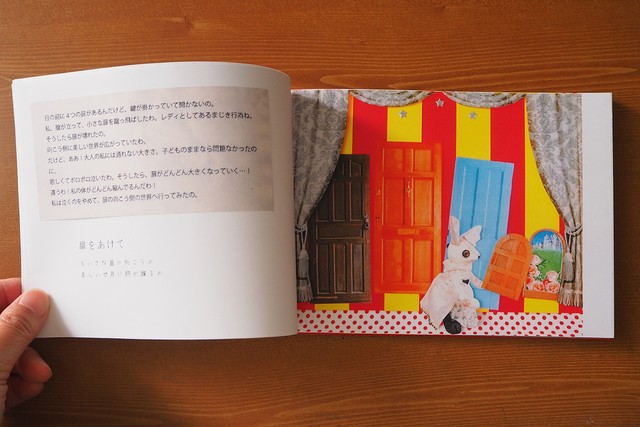 目の前に4つの扉があるんだけど、鍵が掛かっていて開かないの。
私、腹が立って、小さな扉を蹴っ飛ばしたわ。レディとしてあるまじき行為ね。
そうしたら扉が壊れたの。
向こう側に美しい世界が広がっていたわ。
だけど、ああ！大人の私には通れない大きさ。子どものままなら問題なかったの
に。
悲しくてボロボロ泣いたわ。そうしたら、扉がどんどん大きくなっていく…！
違うわ！私の体がどんどん縮んでるんだわ！
私は泣くのをやめて、扉の向こう側の世界へ行ってみたの。
扉をあけて
ちいさな扉の向こう